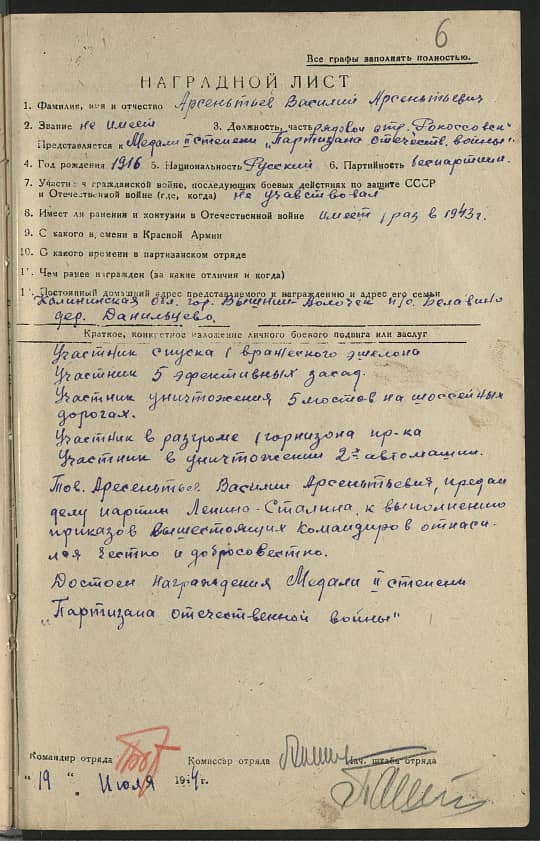 6
Все графы заполнять полностью.
НАГРАДНОЙ ЛИСТ
1. Фамилия, имя и отчество Арсентьев Василий Арсентьевич
2. Звание не имеет 3. Должность, часть рядовой отр. "Рокоссовск"
Представляется к Медали II степени "Партизана отечеств. войны"
4. Год рождения 1916 5. Национальность Русский 6. Партийность беспартийн.
7. Участие в гражданской войне, последующих боевых действиях по защите СССР
и Отечественной войне (где, когда) не учавствовал
8. Имеет ли ранения и контузии в Отечественной войне имеет 1 раз в 1943 г.
9. С какого времени в Красной Армии
10. С какого времени в партизанском отряде
11. Чем ранее награжден (за какие отличия и когда)
12. Постоянный домашний адрес представляемого к награждению и адрес его семьи
Калининская обл. гор. Вышний Волочек п/о. Белавино
дер. Данильцево.
Краткое, конкретное изложение личного боевого подвига или заслуг
Участник спуска 1 вражеского эшелона
Участник 5 эфективных засад.
Участник уничтожения 5 мостов на шоссейных
дорогах.
Участник в разгроме 1 горнизона пр-ка
Участник в уничтожении 2х автомашин.
Тов. Арсеньтьев Василий Арсентьевич, предан
делу партии Ленина-Сталина, к выполнению
приказов вышестоящих командиров относи-
лся честно и добросовестно.
Достоен награждения Медали II степени
"Партизана отечественной войны"
Командир отряда Комиссар отряда Нач. штаба отряда
"19" Июля 1944 г.